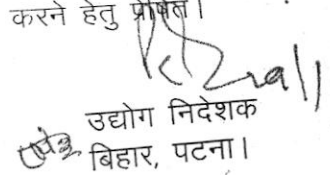 करने हेतु प्रेषित।
उद्योग निदेशक
बिहार, पटना।